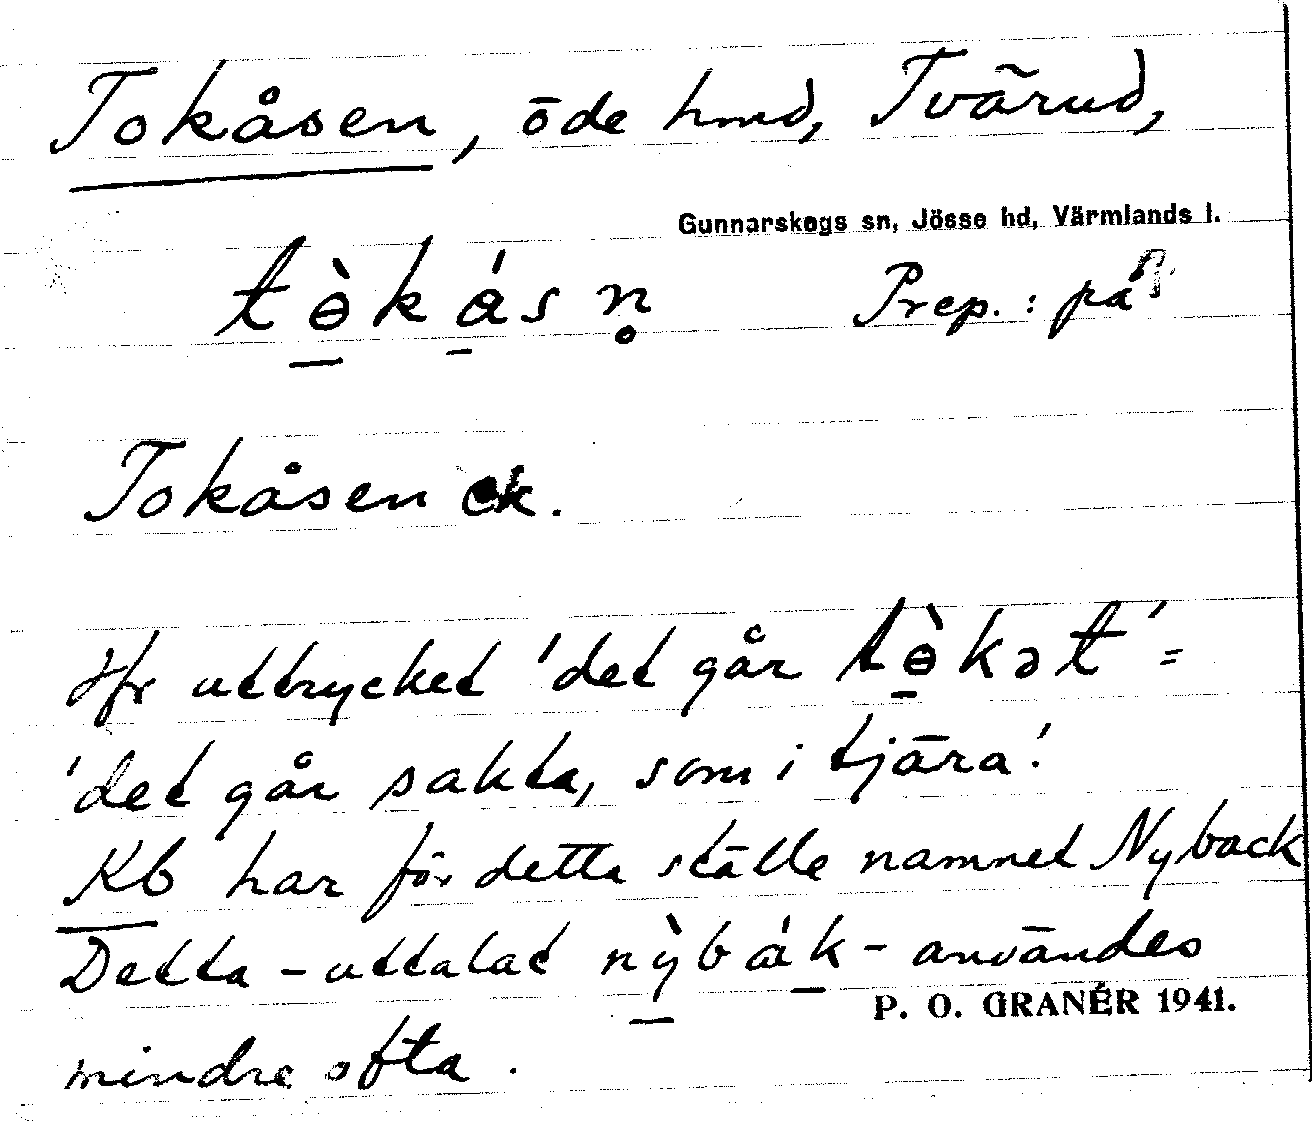 Tokåsen, öde hmd, Tvärud,
Gunnarskogs sn, Jösse hd, Värmlands l.
tɵ̀kåsn̥ Prep.: på
Tokåsen ek.
Jfr uttrycket 'det går tɵ̀kət' =
'det går sakta, som i tjära'.
Kb har för detta ställe namnet Nyback
Detta - uttalat nỳbák - användes
P. O. GRANÉR 1941.
mindre ofta.